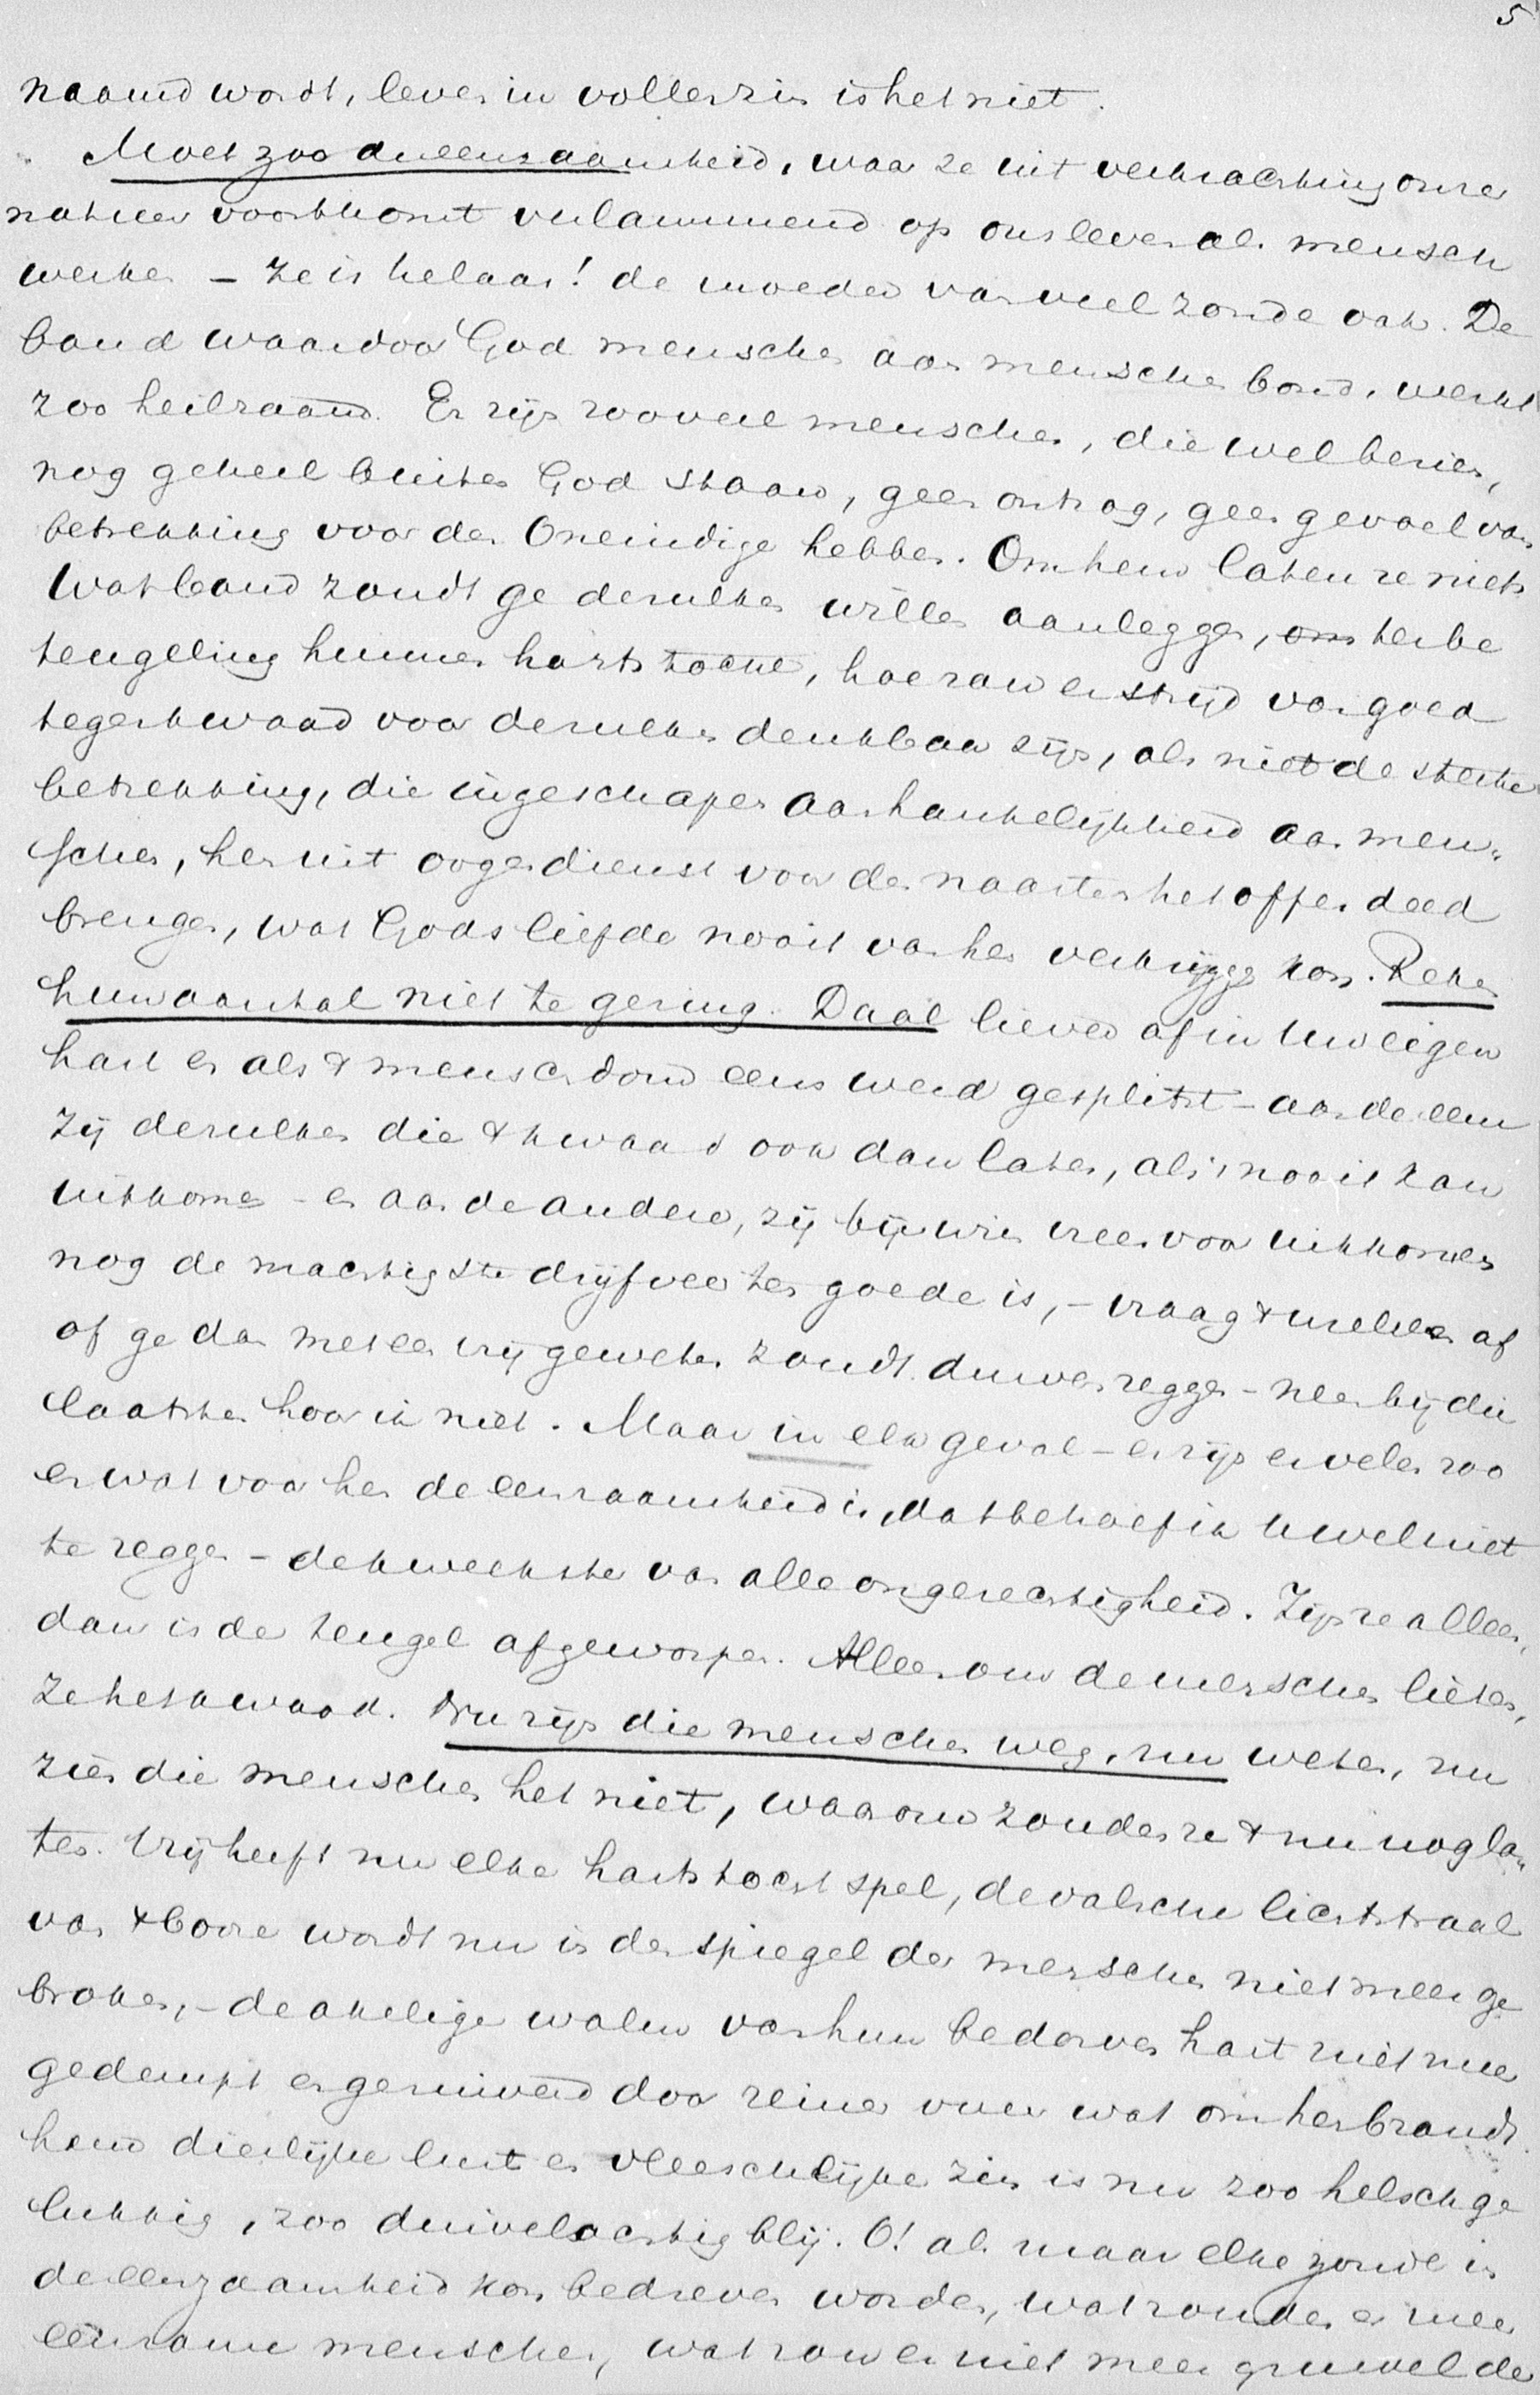 5
naamd wordt, leven in vollen zin is het niet.
Moet zoo de eenzaamheid, waar ze uit verkrachting onzer
natuur voortkomt verlammend op ons leven als mensch
werken – ze is helaas! de moeder van veel zonde ook. De
band waardoor God menschen aan menschen bond, werkt
zoo heilzaam. Er zijn zooveel menschen, die wel bezien,
nog geheel buiten God staan, geen ontzag, geen gevoel van
betrekking voor den Oneindige hebben. Om hem laten ze niets
Wat band zoudt ge denzulken willen aanleggen, om ter be
teugeling hunner hartstocht, hoe zou er strijd van goed
tegen kwaad voor denzulken denkbaar zijn, als niet de sterke
betrekking, die ingeschapen aanhankelijkheid aan men„
schen, hen uit oogendienst voor den naasten het offer deed
brengen, wat Gods liefde nooit van hen verkrijgen kon. Reken
hun aantal niet te gering. Daal liever af in uw eigen
hart en als 't menschdom eens werd gesplitst – aan de een
zij denzulken die 't kwaad ook dan laten, als 't nooit kan
uitkomen – en aan de andere, zij bij wien vrees voor uitkomen
nog de machtigste drijfveer ten goede is, – vraag 't uzelven af
of ge dan met een vrij geweten zoudt durven zeggen – neen bij die
laatsten hoor ik niet. Maar in elk geval – er zijn er velen zoo
en wat voor hen de eenzaamheid is, dat behoef ik u wel niet
te zeggen – de kweekster van alle ongerechtigheid. Zijn ze alleen,
dan is de teugel afgeworpen. Alleen om de menschen lieten,
ze het kwaad. Nu zijn die menschen weg, nu weten, nu
zien die menschen het niet, waarom zouden ze 't nu nog la„
ten. Vrij heeft nu elke hartstocht spel, de valsche lichtstraal
van 't booze wordt nu in den spiegel der menschen niet meer ge
broken, – de akelige walm van hun bedorven hart niet meer
gedempt en gezuiverd door reiner vuur wat om hen brandt.
hun dierlijke lust en vleeschelijke zin is nu zoo helsch ge
lukkig, zoo duivelachtig blij. O! als maar elke zonde in
de eenzaamheid kon bedreven worden, wat zouden er meer
eenzame menschen, wat zou er niet meer gruwel der